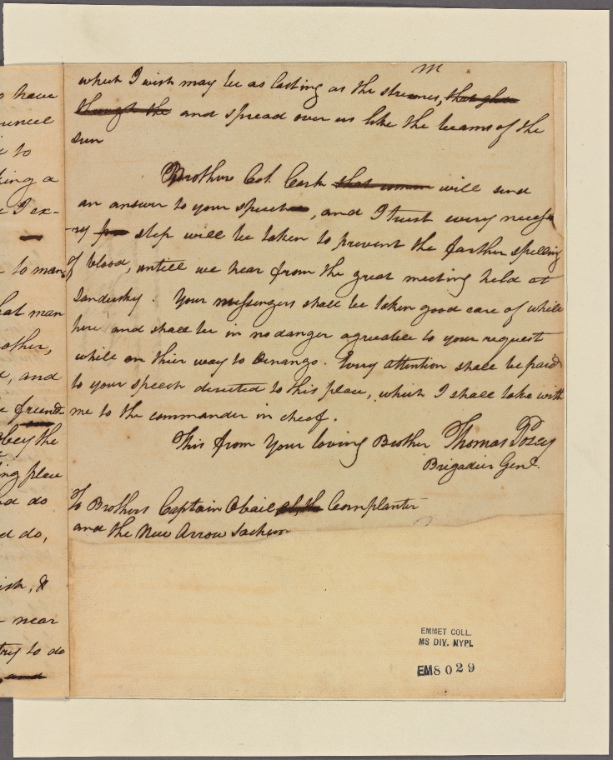 o have
to
ing a
I ex-
to man
hat man
other,
, and
friend
obey the
ing place
do
d do,
ish, &
near
try to do
and
m
which I wish may be as lasting as the streams,
though the and spread over us like the beams of the
sun
Brother Col. Cark will send
an answer to your speech, and I trust every necessa
ry step will be taken to prevent the farther spelling
of blood, untill we hear from the great meeting held at
Sandusky. Your messengers shall be taken good care of while
here and shall be in no danger agreeable to your request
while on thier way to Venango. Every attention shall be paid
to your speech directed to this place, which I shall take with
me to the commander in cheaf.
This from Your loving Brother Thomas Pozey
Brigadier Genl.
To Brothers Captain Obail Cornplanter
and the New Arrow Jackson
EMMET COLL.
MS DIV. NYPL
EM8029